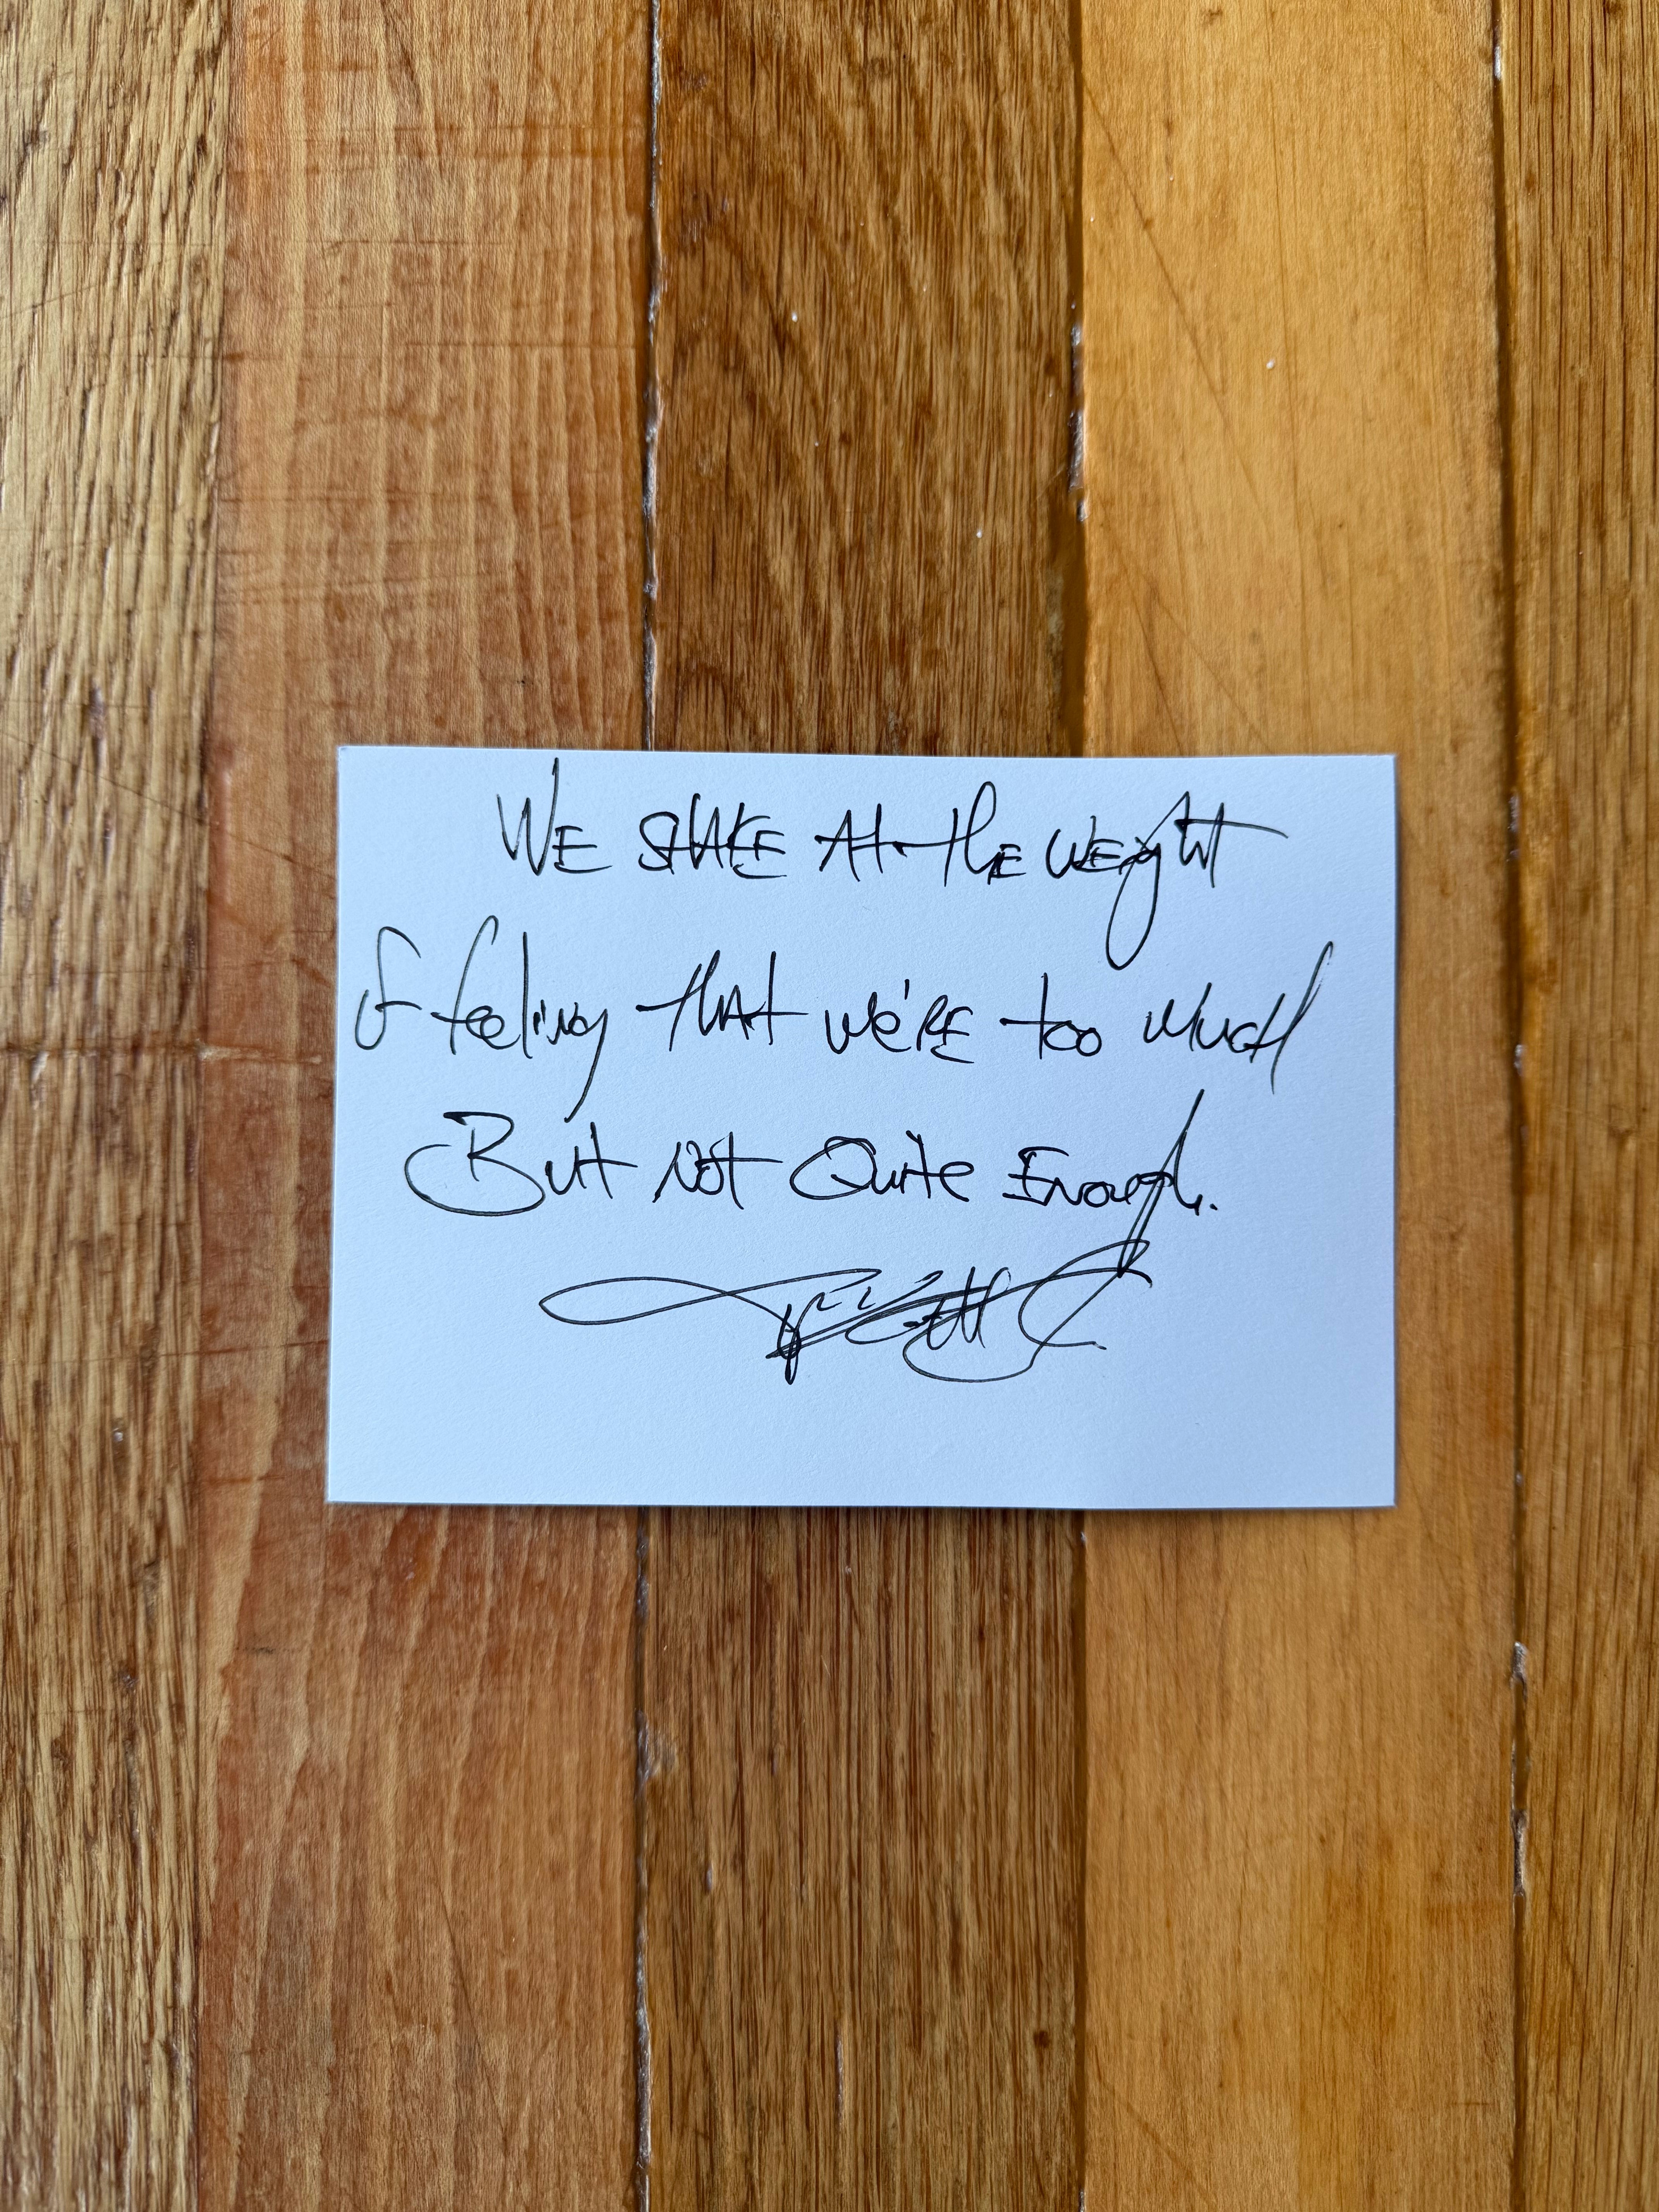 WE SHAKE At the WEIght
of feeling that we'RE too Much
But Not Quite Enough.